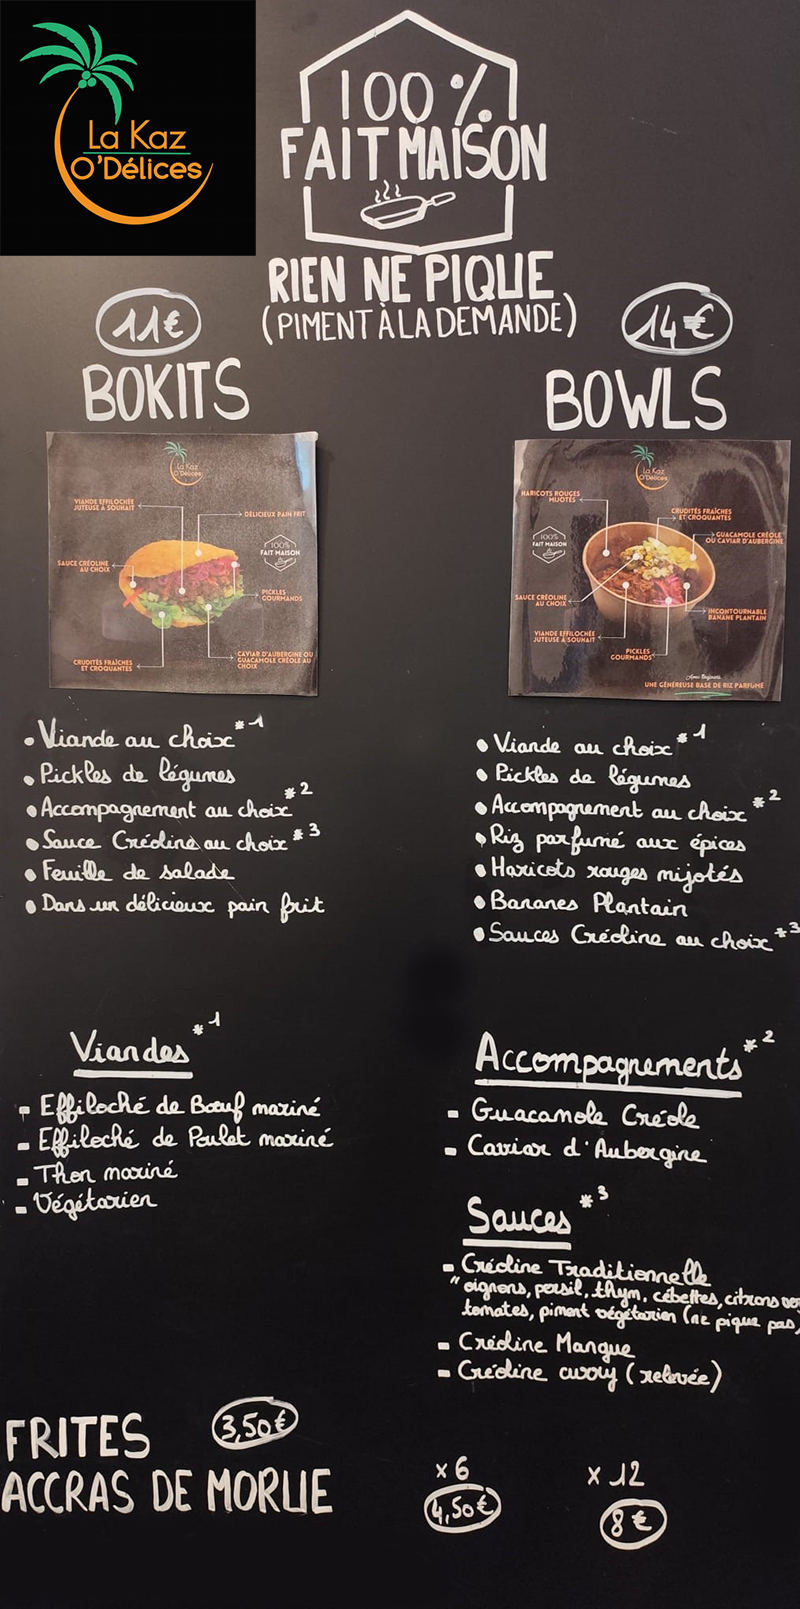 La Kaz
O'Délices
100%
FAIT MAISON
RIEN NE PIQUE
(PIMENT À LA DEMANDE)
11€
BOKITS
La Kaz
O'Délices
VIANDE EFFILOCHÉE
JUTEUSE À SOUHAIT
DÉLICIEUX PAIN FRIT
100%
FAIT MAISON
SAUCE CRÉOLINE
AU CHOIX
PICKLES
GOURMANDS
CAVIAR D'AUBERGINE OU
GUACAMOLE CRÉOLE AU
CHOIX
CRUDITÉS FRAÎCHES
ET CROQUANTES
• Viande au choix *1
• Pickles de légumes
• Accompagnement au choix *2
• Sauce Créoline au choix *3
• Feuille de salade
• Dans un délicieux pain frit
14€
BOWLS
La Kaz
O'Délices
HARICOTS ROUGES
MIJOTÉS
CRUDITÉS FRAÎCHES
ET CROQUANTES
100%
FAIT MAISON
GUACAMOLE CRÉOLE
OU CAVIAR D'AUBERGINE
SAUCE CRÉOLINE
AU CHOIX
INCONTOURNABLE
BANANE PLANTAIN
VIANDE EFFILOCHÉE
JUTEUSE À SOUHAIT
PICKLES
GOURMANDS
UNE GÉNÉREUSE BASE DE RIZ PARFUMÉ
• Viande au choix *1
• Pickles de légumes
• Accompagnement au choix *2
• Riz parfumé aux épices
• Haricots rouges mijotés
• Bananes Plantain
• Sauces Créoline au choix *3
Viandes *1
- Effiloché de Bœuf mariné
- Effiloché de Poulet mariné
- Thon mariné
- Végétarien
Accompagnements *2
- Guacamole Créole
- Caviar d'Aubergine
Sauces *3
- Créoline Traditionnelle
"oignons, persil, thym, cébettes, citrons
tomates, piment végétarien (ne pique pas)
- Créoline Mangue
- Créoline curry (relevée)
FRITES 3,50€
ACCRAS DE MORUE
x 6
4,50€
x 12
8€